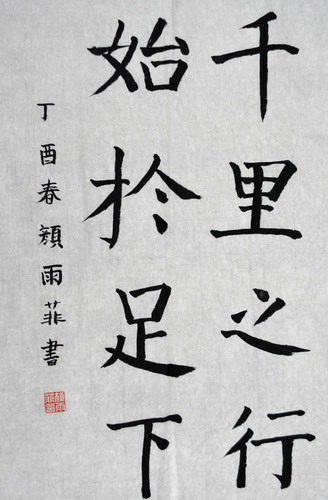 千里之行
始於足下
丁酉春顏雨菲書